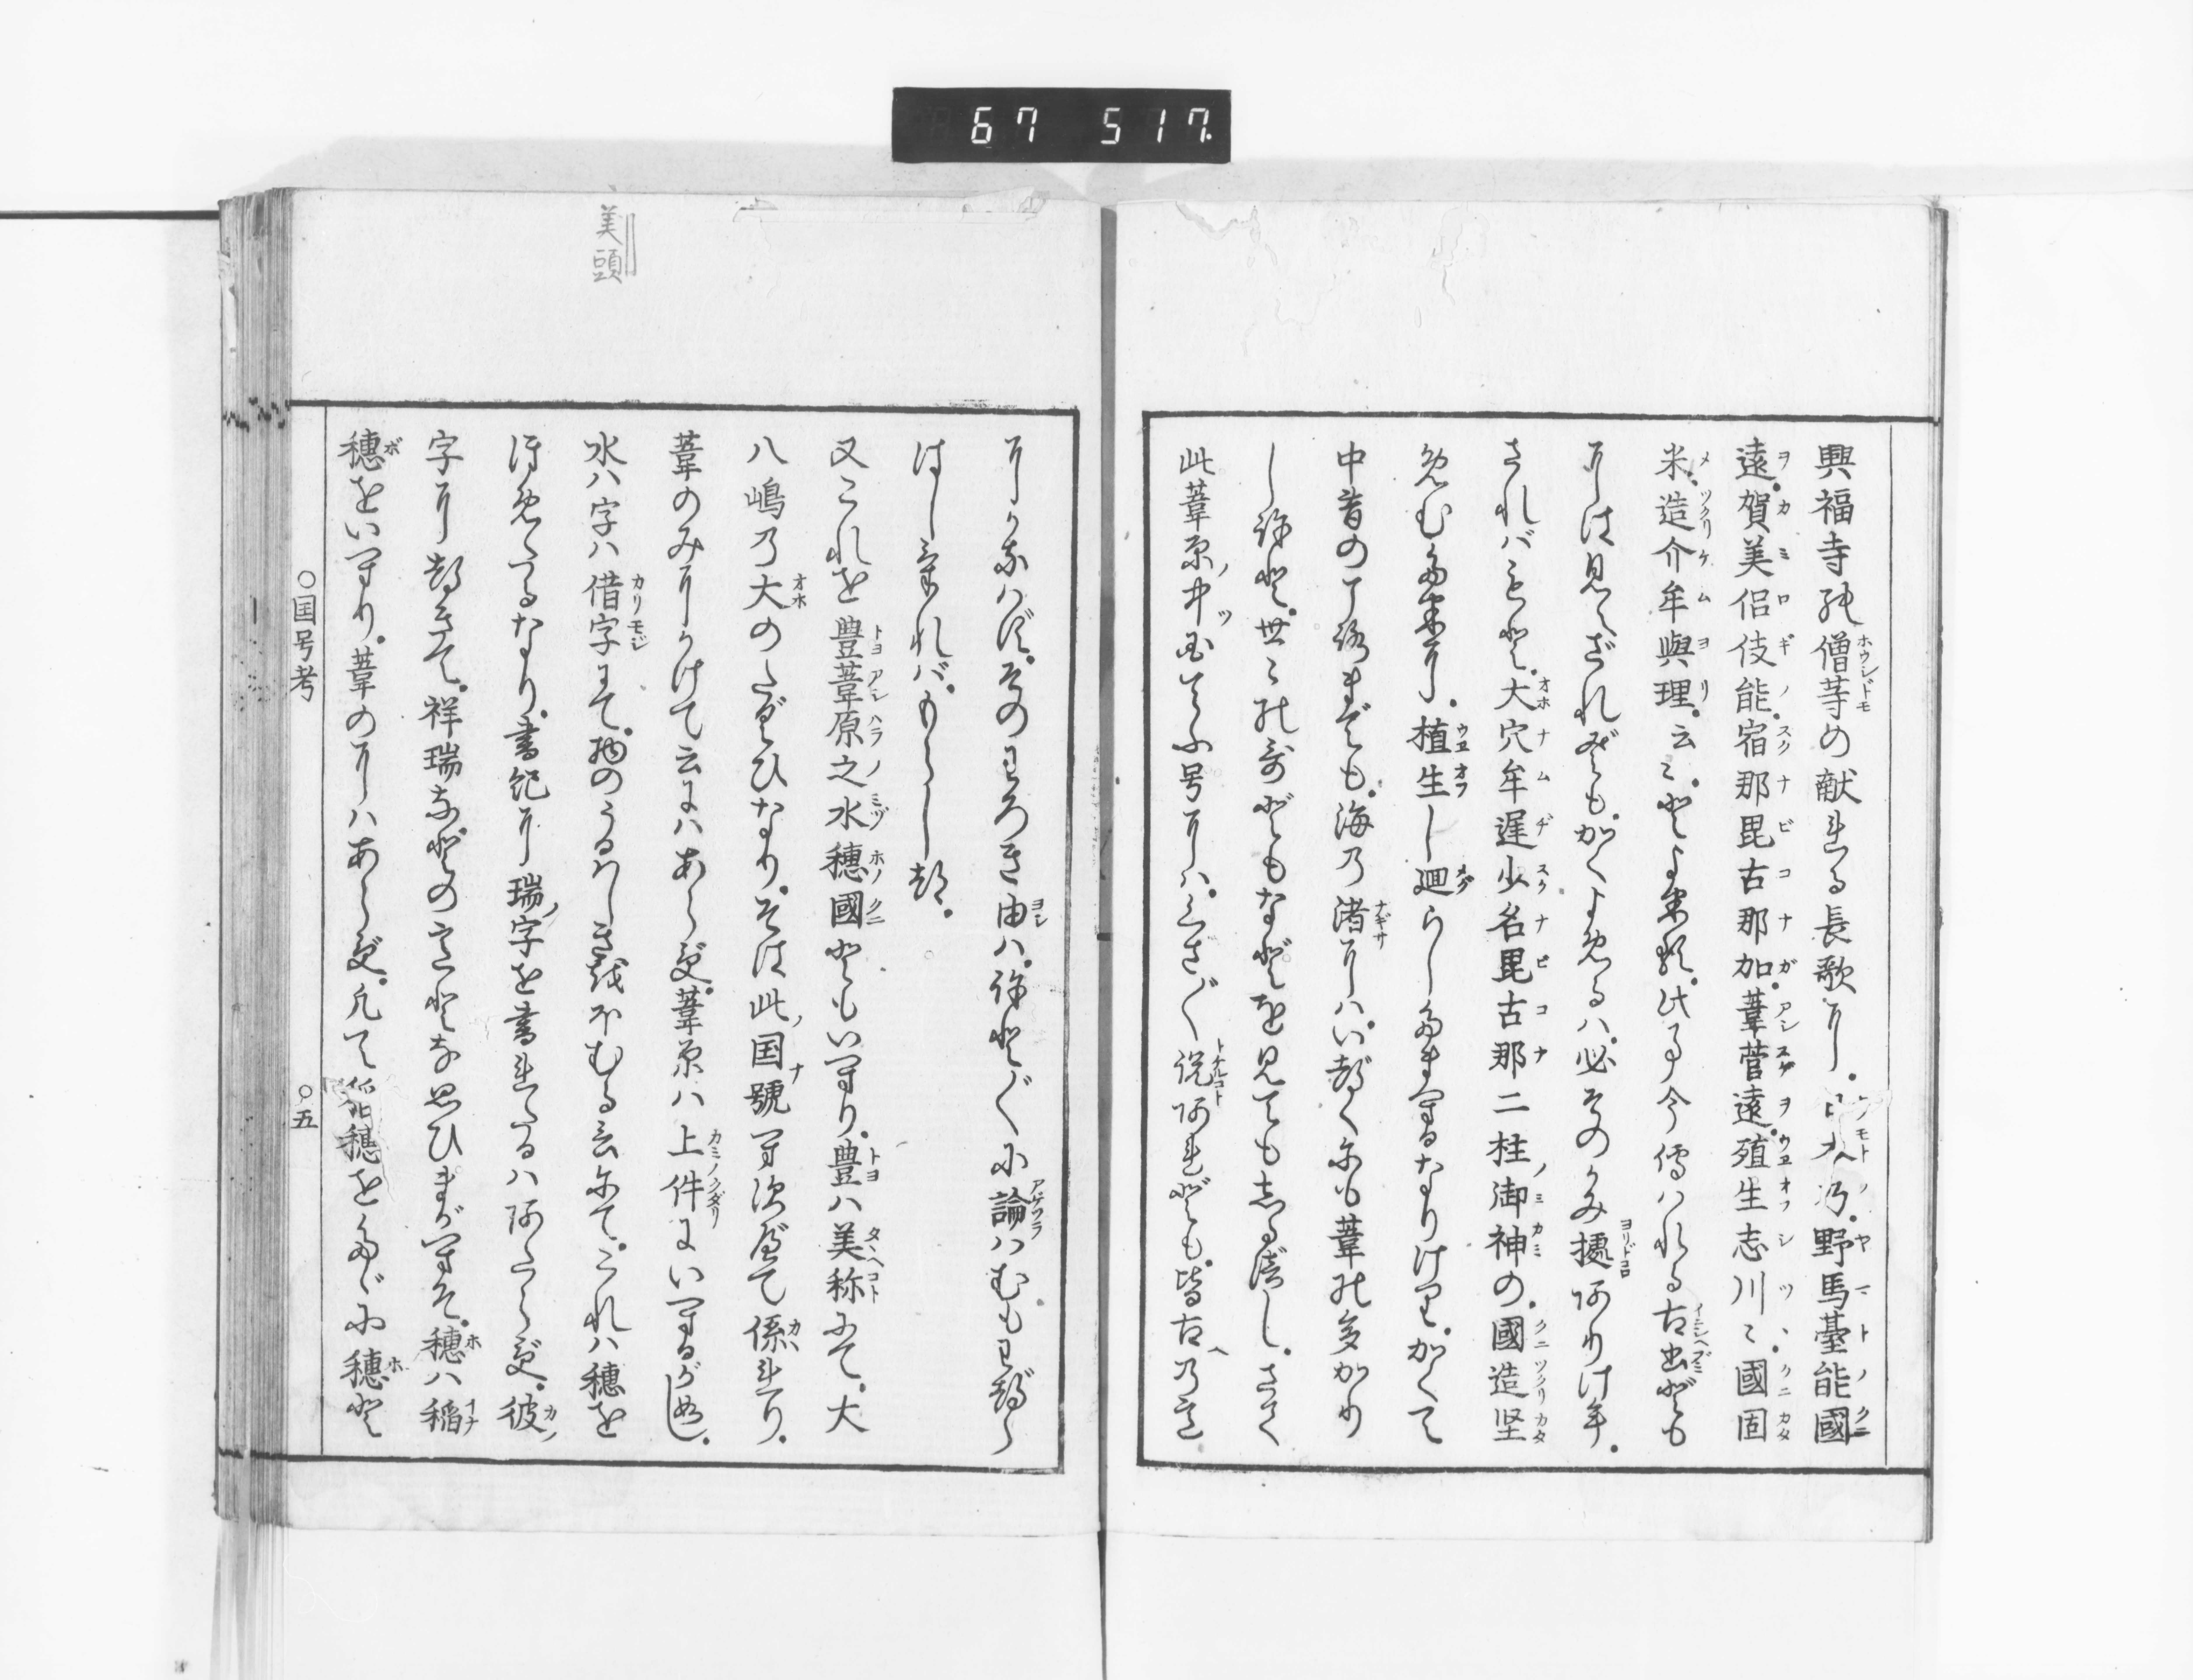 67 517
興福寺の僧等の献れる長歌に。日本乃。野馬臺能國
遠。賀美侶伎能。宿那毘古那加。葦菅遠。殖生志川〻。國固
米。造介牟與理。云〻。とよみたり。此事今傳ハれる古書ども
にハ見えざれども。かくよめるハ。必そのかみ據ありけむ。
されバもと。大穴牟遅少名毘古那二柱ノ御神の。國造堅
めむために。植生し廻らしたまへるなりけり。かくて
中昔のころまでも。海乃渚にハ。いたく葦の多かり
しこと。世〻の哥どもなどを見ても志るべし。さて
此葦原ノ中ツ国てふ号にハ。くさ〴〵説あれども。皆古への意
にかなハず。そのわろき由ハ。こと〴〵に論ハむもわづら
はしければ。もらしつ。
又これを豊葦原之水穂國ともいへり。豊ハ美称にて。大
八嶋乃大のたぐひなり。そは此ノ国號へ次第て係れり。
葦のみにかけて云にハあらず。葦原ハ上件にいへるがごとし。
水ハ字ハ借字にて。物のうるハしきをほむる言にて。これハ穂を
ほめたるなり。書紀に瑞ノ字を書れたるハあたらず。彼
字につきて。祥瑞などのこととな思ひまがへそ。穂ハ稲
穂をいへり。葦のにハあらず。凡て稲穂をたゞに穂と
○国号考 ○五
美頭